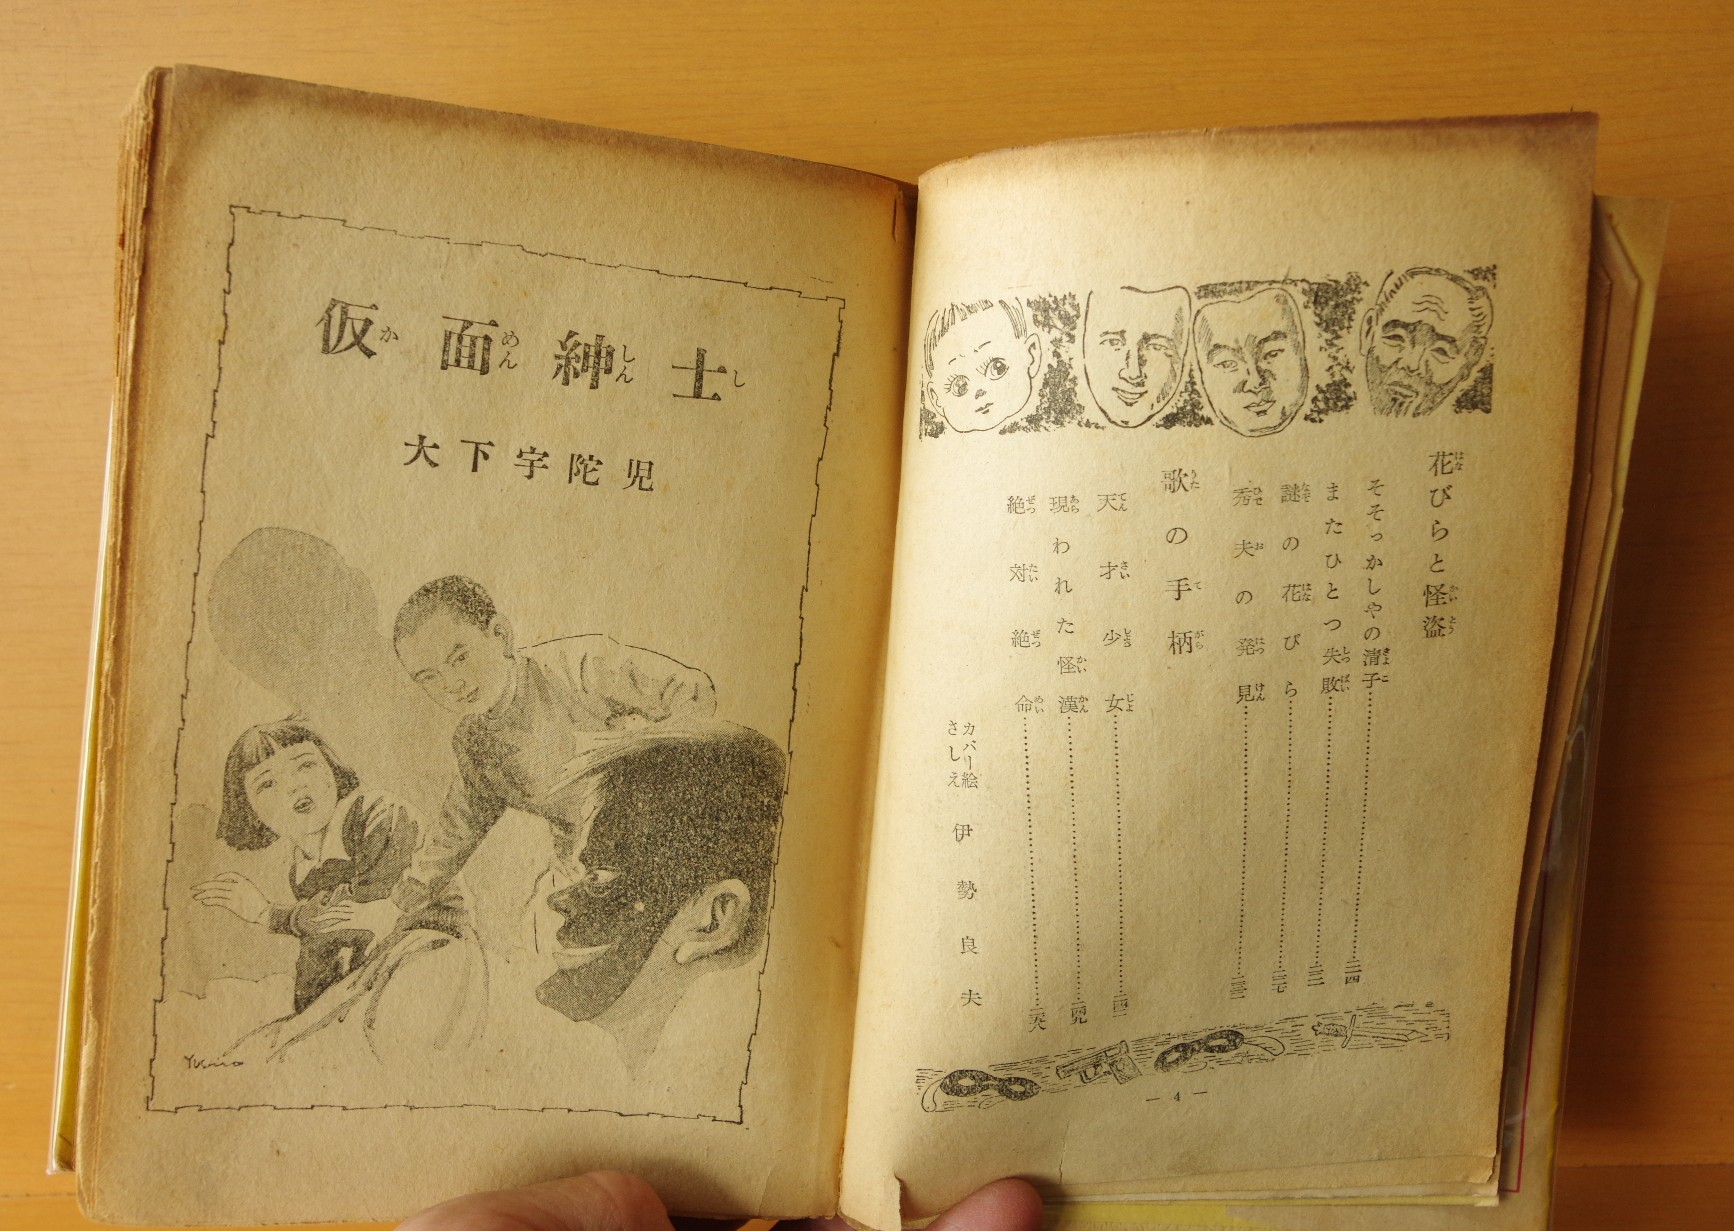 花びらと怪盗
そそっかしやの清子
またひとつ失敗
謎の花びら
秀夫の発見
歌の手柄
天才少女
現われた怪漢
絶対絶命
カバー絵
さしえ
伊勢良夫
— 4 —
仮面紳士
大下宇陀児
Yosio